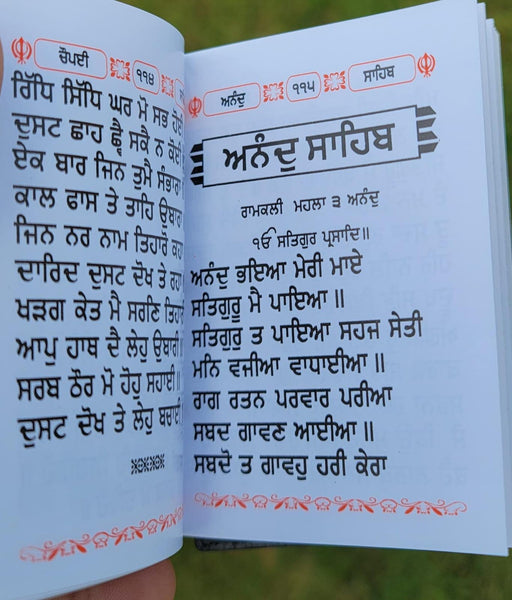 ਚੌਪਈ
੧੧੪
ਰਿੱਧਿ ਸਿੱਧਿ ਘਰ ਮੋ ਸਭ ਹੋਈ
ਦੁਸਟ ਛਾਹ ਛ੍ਵੈ ਸਕੈ ਨ ਕੋਈ
ਏਕ ਬਾਰ ਜਿਨ ਤੁਮੈ ਸੰਭਾਰਾ
ਕਾਲ ਫਾਸ ਤੇ ਤਾਹਿ ਉਬਾਰਾ
ਜਿਨ ਨਰ ਨਾਮ ਤਿਹਾਰੋ ਕਹਾ
ਦਾਰਿਦ ਦੁਸਟ ਦੋਖ ਤੇ ਰਹਾ
ਖੜਗ ਕੇਤ ਮੈ ਸਰਣਿ
ਆਪੁ ਹਾਥ ਦੈ ਲੇਹੁ ਉਬਾਰੀ
ਸਰਬ ਠੌਰ ਮੋ ਹੋਹੁ ਸਹਾਈ
ਦੁਸਟ ਦੋਖ ਤੇ ਲੇਹੁ ਬਚਾਈ
ਅਨੰਦੁ
੧੧੫
ਸਾਹਿਬ
ਅਨੰਦੁ ਸਾਹਿਬ
ਰਾਮਕਲੀ ਮਹਲਾ ੩ ਅਨੰਦੁ
ੴ ਸਤਿਗੁਰ ਪ੍ਰਸਾਦਿ॥
ਅਨੰਦੁ ਭਇਆ ਮੇਰੀ ਮਾਏ
ਸਤਿਗੁਰੂ ਮੈ ਪਾਇਆ ॥
ਸਤਿਗੁਰੁ ਤ ਪਾਇਆ ਸਹਜ ਸੇਤੀ
ਮਨਿ ਵਜੀਆ ਵਾਧਾਈਆ ॥
ਰਾਗ ਰਤਨ ਪਰਵਾਰ ਪਰੀਆ
ਸਬਦ ਗਾਵਣ ਆਈਆ ॥
ਸਬਦੋ ਤ ਗਾਵਹੁ ਹਰੀ ਕੇਰਾ